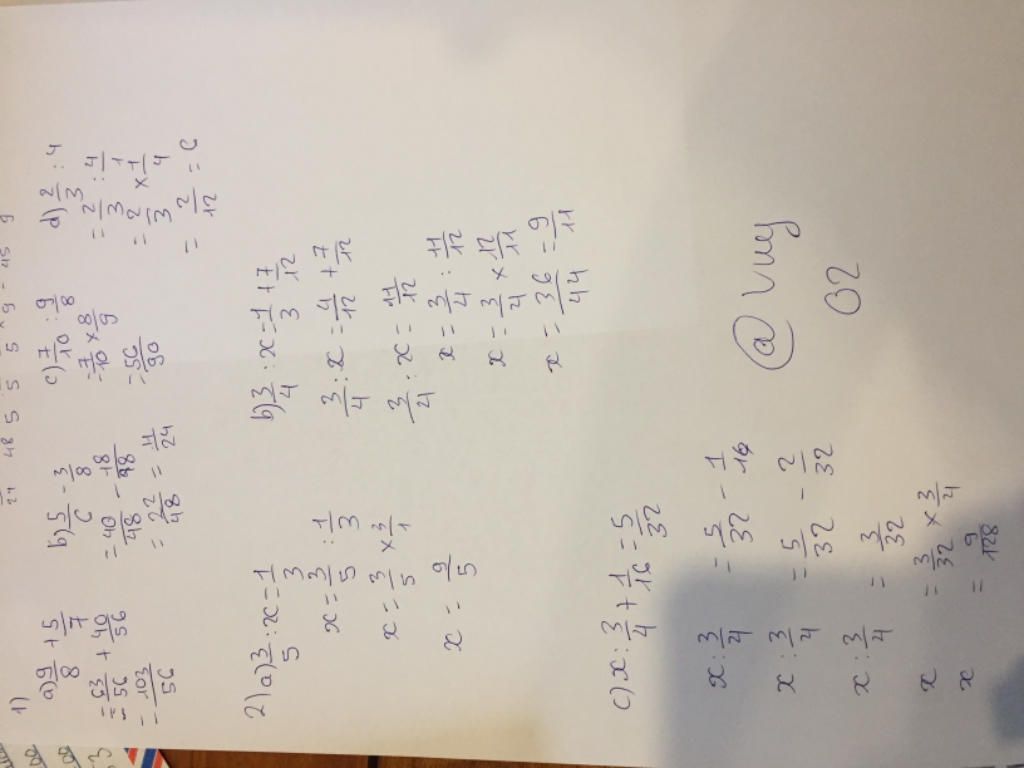 1)
a) 9/8 + 5/7
= 63/56 + 40/56
= 103/56
b) 5/6 - 3/8
= 40/48 - 18/48
= 22/48 = 11/24
c) 7/10 : 9/8
= 7/10 × 8/9
= 56/90
d) 2/3 : 4
= 2/3 : 4/1
= 2/3 × 1/4
= 2/12 = 6
2) a) 3/5 : x = 1/3
x = 3/5 : 1/3
x = 3/5 × 3/1
x = 9/5
b) 3/4 : x = 1/3 + 7/12
3/4 : x = 4/12 + 7/12
3/4 : x = 11/12
x = 3/4 : 11/12
x = 3/4 × 12/11
x = 36/44 = 9/11
c) x : 3/4 + 1/16 = 5/32
x : 3/4 = 5/32 - 1/16
x : 3/4 = 5/32 - 2/32
x : 3/4 = 3/32
x = 3/32 × 3/4
x = 9/128
02